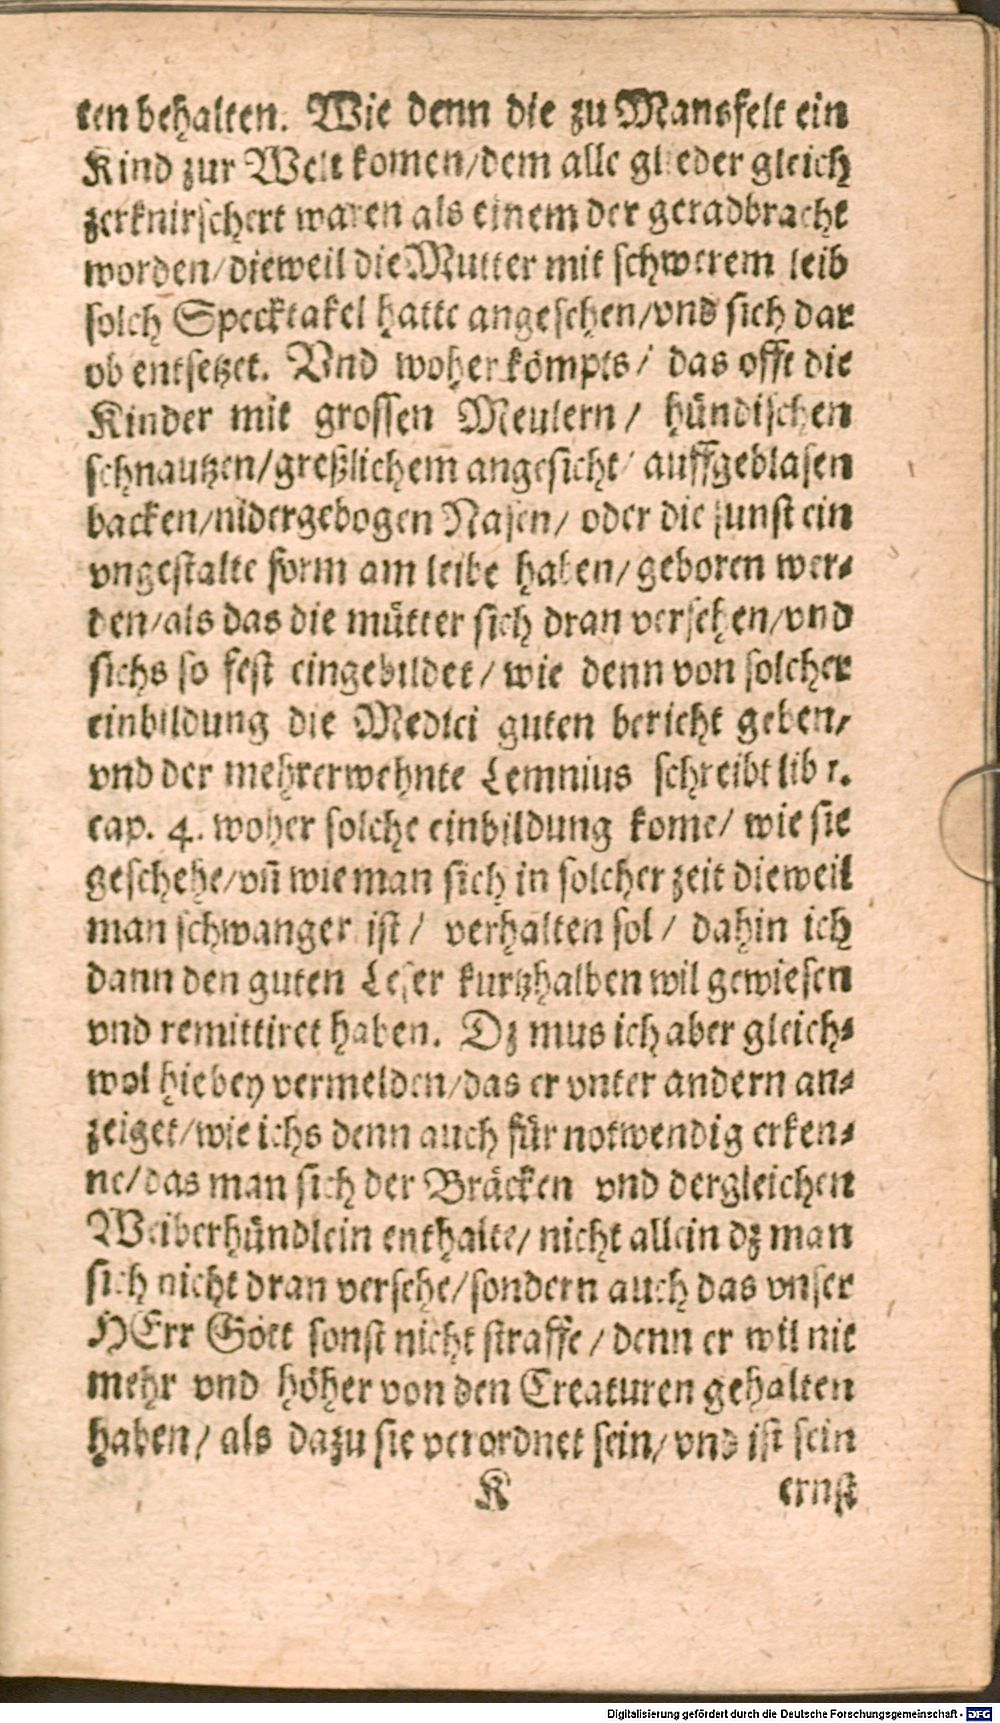 ten behalten. Wie denn die zu Mansfelt ein
Kind zur Welt komen/dem alle glieder gleich
zerknirschert waren als einem der geradbracht
worden/dieweil die Mutter mit schwerem leib
solch Specktakel hatte angesehen/vnd sich dar
ob entsetzet. Vnd woher kömpts/ das offt die
Kinder mit grossen Meulern/ hündischen
schnautzen/greßlichem angesicht/ auffgeblasen
backen/nidergebogen Nasen/ oder die sunst ein
vngestalte form am leibe haben/geboren wer-
den/als das die mütter sich dran versehen/vnd
sichs so fest eingebildet/ wie denn von solcher
einbildung die Medici guten bericht geben/
vnd der mehrerwehnte Lemnius schreibt lib 1.
cap. 4. woher solche einbildung kome/ wie sie
geschehe/vñ wie man sich in solcher zeit dieweil
man schwanger ist/ verhalten sol/ dahin ich
dann den guten Leser kurtzhalben wil gewiesen
vnd remittiret haben. Dz mus ich aber gleich-
wol hiebey vermelden/das er vnter andern an-
zeiget/wie ichs denn auch für notwendig erken-
ne/das man sich der Bräcken vnd dergleichen
Weiberhündlein enthalte/ nicht allein dz man
sich nicht dran versehe/sondern auch das vnser
HErr Gott sonst nicht straffe/ denn er wil nit
mehr vnd höher von den Creaturen gehalten
haben/ als dazu sie verordnet sein/ vnd ist sein
K ernst
Digitalisierung gefördert durch die Deutsche Forschungsgemeinschaft - DFG